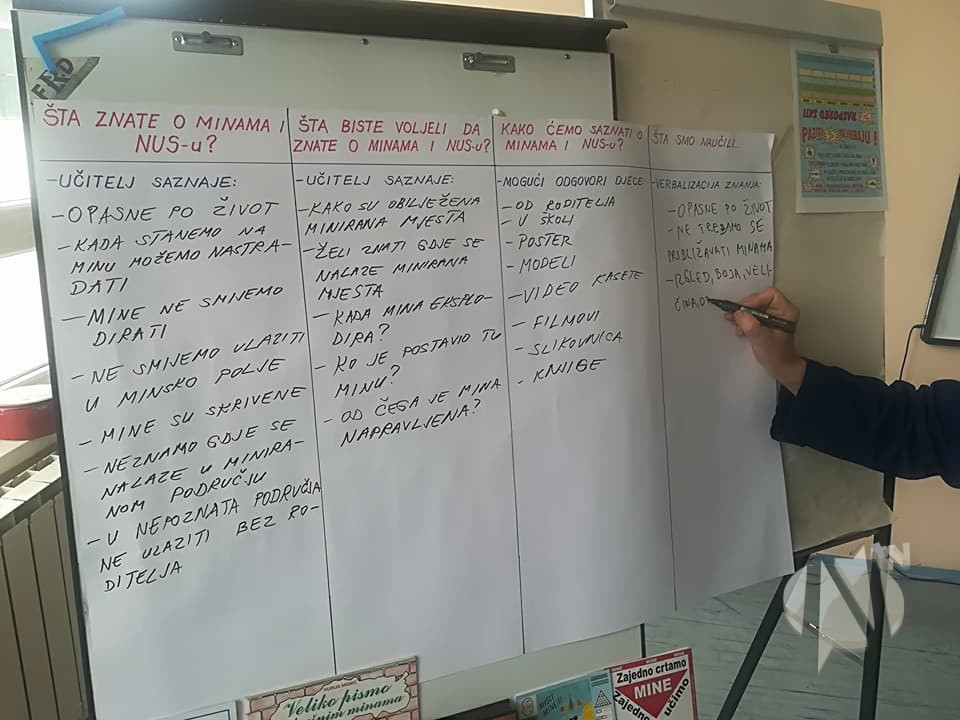 FRD
ŠTA ZNATE O MINAMA I
NUS-u?
-UČITELJ SAZNAJE:
-OPASNE PO ŽIVOT
-KADA STANEMO NA
MINU MOŽEMO NASTRA-
DATI
-MINE NE SMIJEMO
DIRATI
-NE SMIJEMO ULAZITI
U MINSKO POLJE
-MINE SU SKRIVENE
-NEZNAMO GDJE SE
NALAZE U MINIRA-
NOM PODRUČJU
-U NEPOZNATA PODRUČJA
NE ULAZITI BEZ RO-
DITELJA
ŠTA BISTE VOLJELI DA
ZNATE O MINAMA I NUS-u?
-UČITELJ SAZNAJE:
-KAKO SU OBILJEŽENA
MINIRANA MJESTA
-ŽELI ZNATI GDJE SE
NALAZE MINIRANA
MJESTA
-KADA MINA EKSPLO-
DIRA?
-KO JE POSTAVIO TU
MINU?
-OD ČEGA JE MINA
NAPRAVLJENA?
KAKO ĆEMO SAZNATI O
MINAMA I NUS-u?
-MOGUĆI ODGOVORI DJECE:
-OD RODITELJA
-U ŠKOLI
-POSTER
-MODELI
-VIDEO KASETE
-FILMOVI
-SLIKOVNICA
-KNJIGE
ŠTA SMO NAUČILI...
-VERBALIZACIJA ZNANJA:
-OPASNE PO ŽIVOT
-NE TREBAMO SE
PRIBLIŽAVATI MINAMA
-IZGLED, BOJA, VELI-
ČINA,
RASPORED SATI
Veliko pismo
minama
Zajedno crtamo
MINE
Zajedno učimo
N